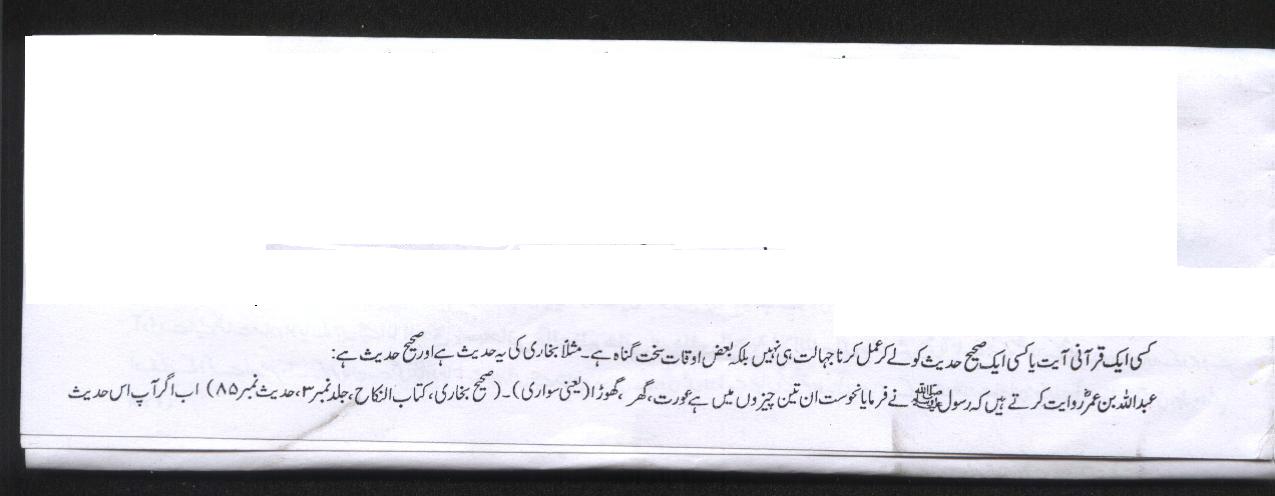 کسی ایک قرآنی آیت یا کسی ایک صحیح حدیث کو لے کر عمل کرنا جہالت ہی نہیں بلکہ بعض اوقات سخت گناہ ہے۔ مثلاً بخاری کی یہ حدیث ہے اور صحیح حدیث ہے:
عبداللہ بن عمرؓ روایت کرتے ہیں کہ رسول ﷺ نے فرمایا نحوست ان تین چیزوں میں ہے عورت، گھر، گھوڑا (یعنی سواری)۔ (صحیح بخاری، کتاب النکاح، جلد نمبر ۳، حدیث نمبر ۸۵) اب اگر آپ اس حدیث